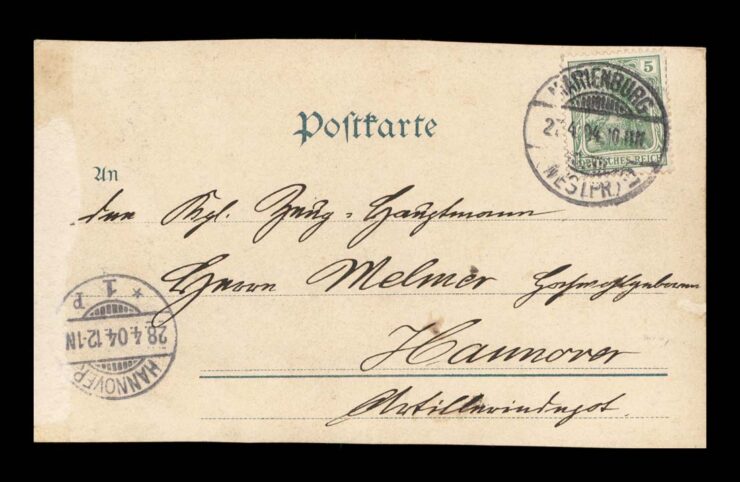 Postkarte
5
MARIENBURG
27.4.04.10-11N.
(WESTPR.)
DEUTSCHES REICH
An
den Kgl. Zeug-Hauptmann
Herrn Melmer Hochwohlgeboren
Hannover
Artilleriedepot.
HANNOVER
28.4.04.12-1N
* 1 P